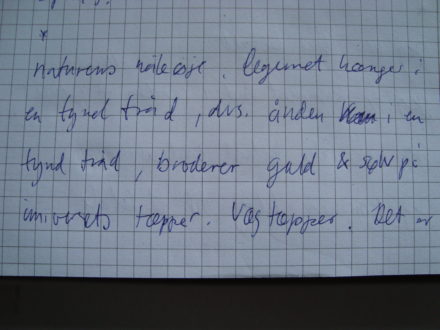 *
naturens nåleøje. legemet hænger i
en tynd tråd, dvs. ånden i en
tynd tråd, broderer guld & sølv på
universets tæpper. Vægtæpper. Det er